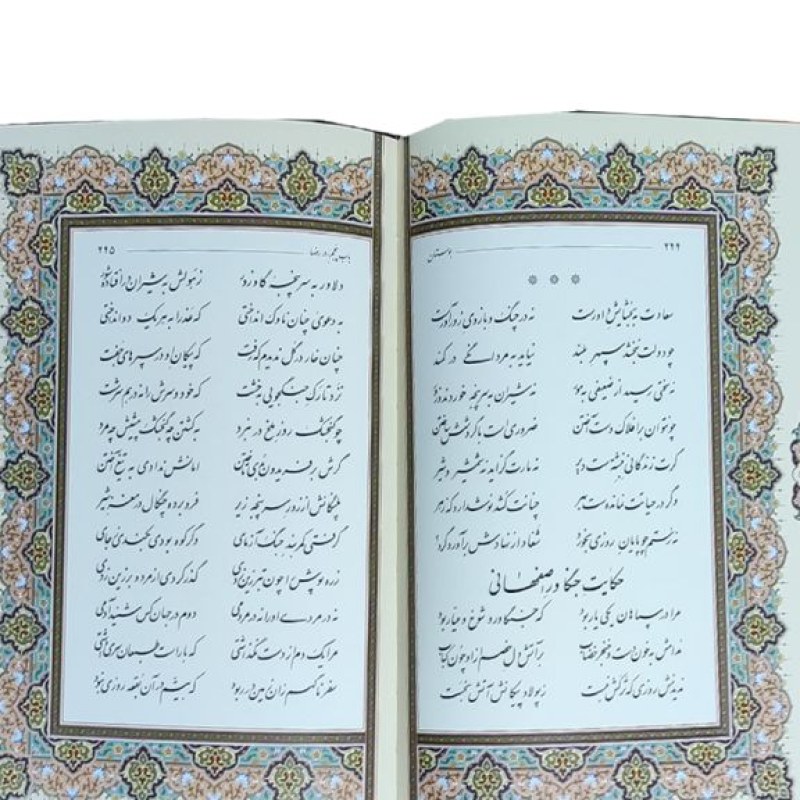 بوستان ۲۹۴
سعادت به بخشایش داورست نه در چنگ و بازوی زورآورست
چو دولت نبخشد سپهر بلند نیاید به مردانگی در کمند
نه سختی رسید از ضعیفی به مور نه شیران به سرپنجه خوردند و زور
چو نتوان بر افلاک دست آختن ضروری است با گردشش ساختن
گرت زندگانی نبشته‌ست دیر نه مارت گزاید نه شمشیر و شیر
وگر در حیاتت نمانده‌ست بهر چنانت کشد نوشدارو که زهر
نه رستم چو پایان روزی بخورد شغاد از نهادش برآورد گرد
حکایت جنگاور اصفهانی
مرا در سپاهان یکی یار بود که جنگاور و شوخ و عیار بود
مدامش به خون دست و خنجر خضاب بر آتش دل خصم ازاو چون کباب
ندیدمش روزی که ترکش نبست ز پولاد پیکانش آتش نجست
باب پنجم در رضا ۲۹۵
دلاور به سرپنجه گاوزور ز هولش به شیران درافتاده شور
به دعوی چنان ناوک انداختی که عذرا به هر یک دو انداختی
چنان خار در گل ندیدم که رفت که پیکان او در سپرهای جفت
نزد تارک جنگجویی به خشت که خود و سرش را نه در هم سرشت
چو گنجشک روز ملخ در نبرد به کشتن چه گنجشک پیشش چه مرد
گرش بر فریدون بدی تاختن امانش ندادی به تیغ آختن
پلنگانش از زور سرپنجه زیر فرو برده چنگال در مغز شیر
گرفتی کمربند جنگ آزمای وگر کوه بودی بکندی ز جای
زره پوش را چون تبرزین زدی گذر کردی از مرد و بر زین زدی
نه در مردی او را نه در مردمی دوم در جهان کس شنید آدمی
مرا یک دم از دست نگذاشتی که با راست طبعان سری داشتی
سفر ناگهم زان زمین در ربود که بیشم در آن بقعه روزی نبود